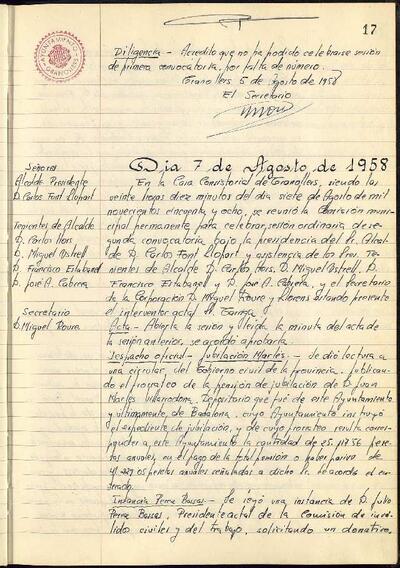 17
AYUNTAMIENTO
GRANOLLERS
Diligencia - Acredito que no ha podido celebrarse sesión
de primera convocatoria, por falta de número.
Granollers 5 de Agosto de 1958
El Secretario
Día 7 de Agosto de 1958
Señores
Alcalde Presidente
D. Carlos Font Llopart
Tenientes de Alcalde
D. Carlos
D. Miguel
D. Francisco
D. José A. Cabrera
Secretario
D. Miguel Roure
En la Casa Consistorial de Granollers, siendo las
veinte horas diez minutos del día siete de Agosto de mil
novecientos cincuenta y ocho, se reunió la Comisión muni-
cipal permanente para celebrar sesión ordinaria de se-
gunda convocatoria, bajo la presidencia del Sr. Alcal-
de D. Carlos Font Llopart y asistencia de los Sres. Te-
nientes de Alcalde D. Carlos D. Miguel D.
Francisco y D. José A. Cabrera, y el secretario
de la Corporación D. Miguel Roure y Llorens estando presente
el interventor actal
Acta - Abierta la sesión y leída la minuta del acta de
la sesión anterior, se acordó aprobarla
Despacho oficial - Jubilación Marlés - Se dió lectura a
una circular, del Gobierno civil de la provincia, publican-
do el prorrateo de la pensión de jubilación de D. Juan
Marlés Depositario que fué de este Ayuntamiento
y últimamente, de Badalona, cuyo Ayuntamiento instruyó
el expediente de jubilación, y de cuyo prorrateo resulta corres-
ponder a este Ayuntamiento la cantidad de pese-
tas anuales, en el pago de la total pensión o haber pasivo de
pesetas anuales señaladas a dicho Sr. Se acordó el en-
terado.
Instancia Perez Bassas - Se leyó una instancia de D. Julio
Perez Bassas, Presidente actal de la Comisión de invá-
lidos civiles y del trabajo, solicitando un donativo,